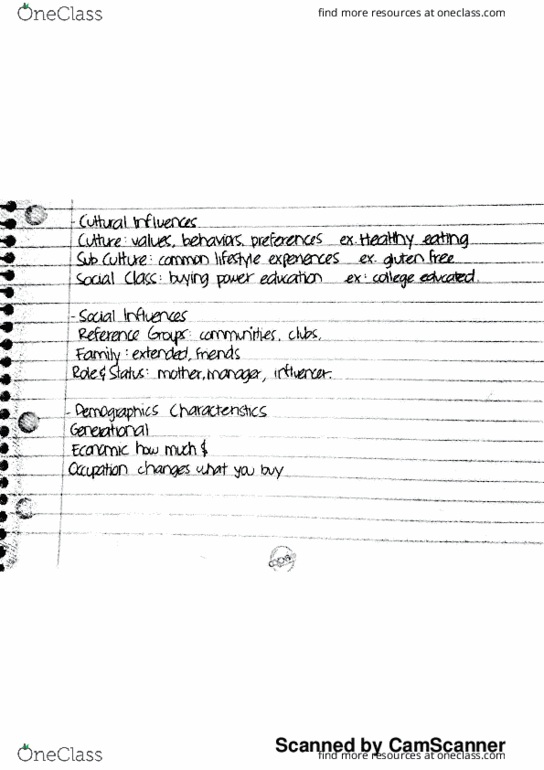 OneClass
find more resources at oneclass.com
- Cultural Influences
Culture: values, behaviors, preferences ex. Healthy eating
Sub Culture: common lifestyle experiences ex. gluten free
Social Class: buying power education ex: college educated.
- Social Influences
Reference Groups: communities, clubs,
Family: extended, friends
Role & Status: mother, manager, influencer.
- Demographics Characteristics
Generational
Economic how much $
Occupation changes what you buy
Scanned by CamScanner
OneClass
find more resources at oneclass.com